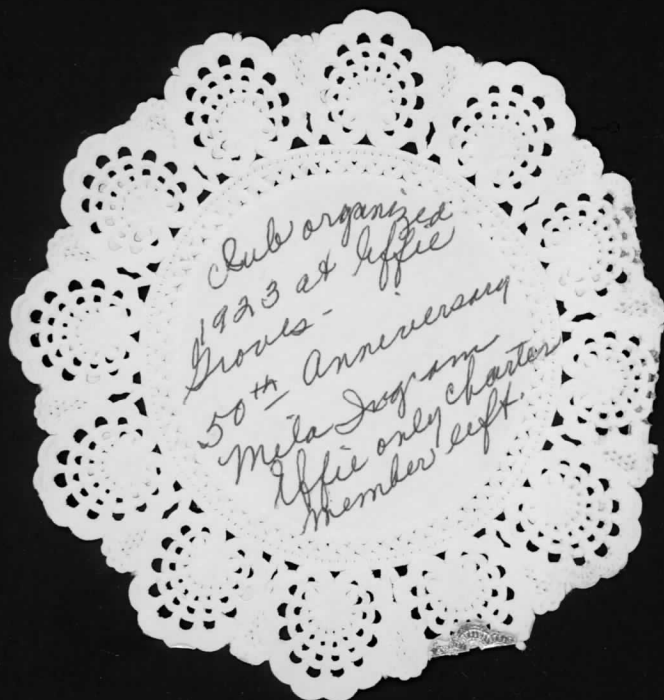 Club organized
1923 at Effie
Groves-
50th Anniversary
Mila Ingram
Effie only charter
member left.